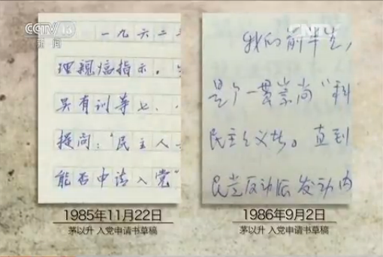 CCTV 13
新闻
一九六二
理规熇指示。
具有训等七、
提问：“民主人
能否申请入党”
我的前半生，
是个一贯崇尚“科
民主主义者。直到
民党反动派发动内
1985年11月22日
茅以升 入党申请书草稿
1986年9月2日
茅以升 入党申请书草稿